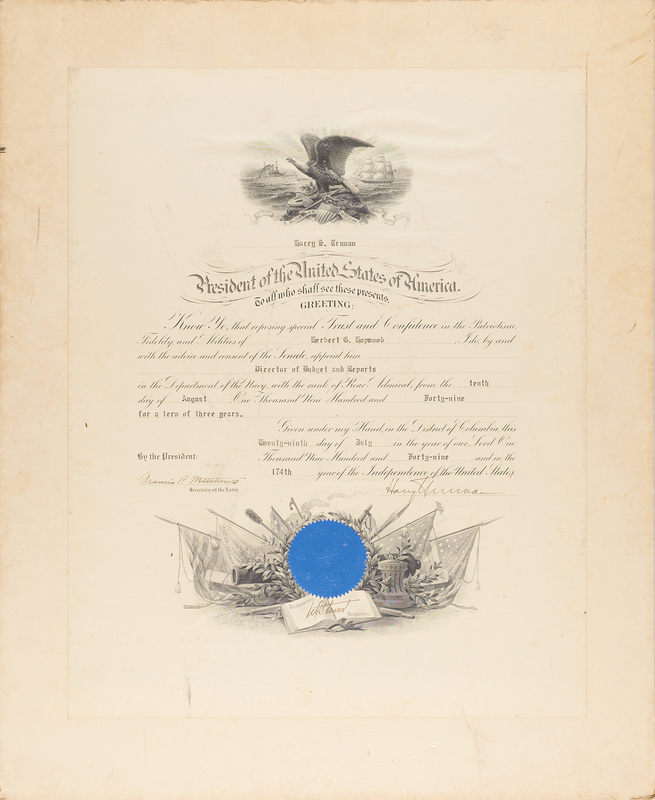 Harry S. Truman
President of the United States of America.
To all who shall see these presents,
GREETING:
Know Ye, that reposing special Trust and Confidence in the Patriotism,
Fidelity and Abilities of Herbert G. Hopwood , I do, by and
with the advice and consent of the Senate, appoint him
Director of Budget and Reports
in the Department of the Navy, with the rank of Rear Admiral, from the tenth
day of August One Thousand Nine Hundred and Forty-nine
for a term of three years.
Given under my Hand, in the District of Columbia, this
Twenty-ninth day of July in the year of our Lord One
By the President: Thousand Nine Hundred and Forty-nine and in the
174th year of the Independence of the United States.
Francis P. Matthews
Secretary of the Navy.
Harry S. Truman